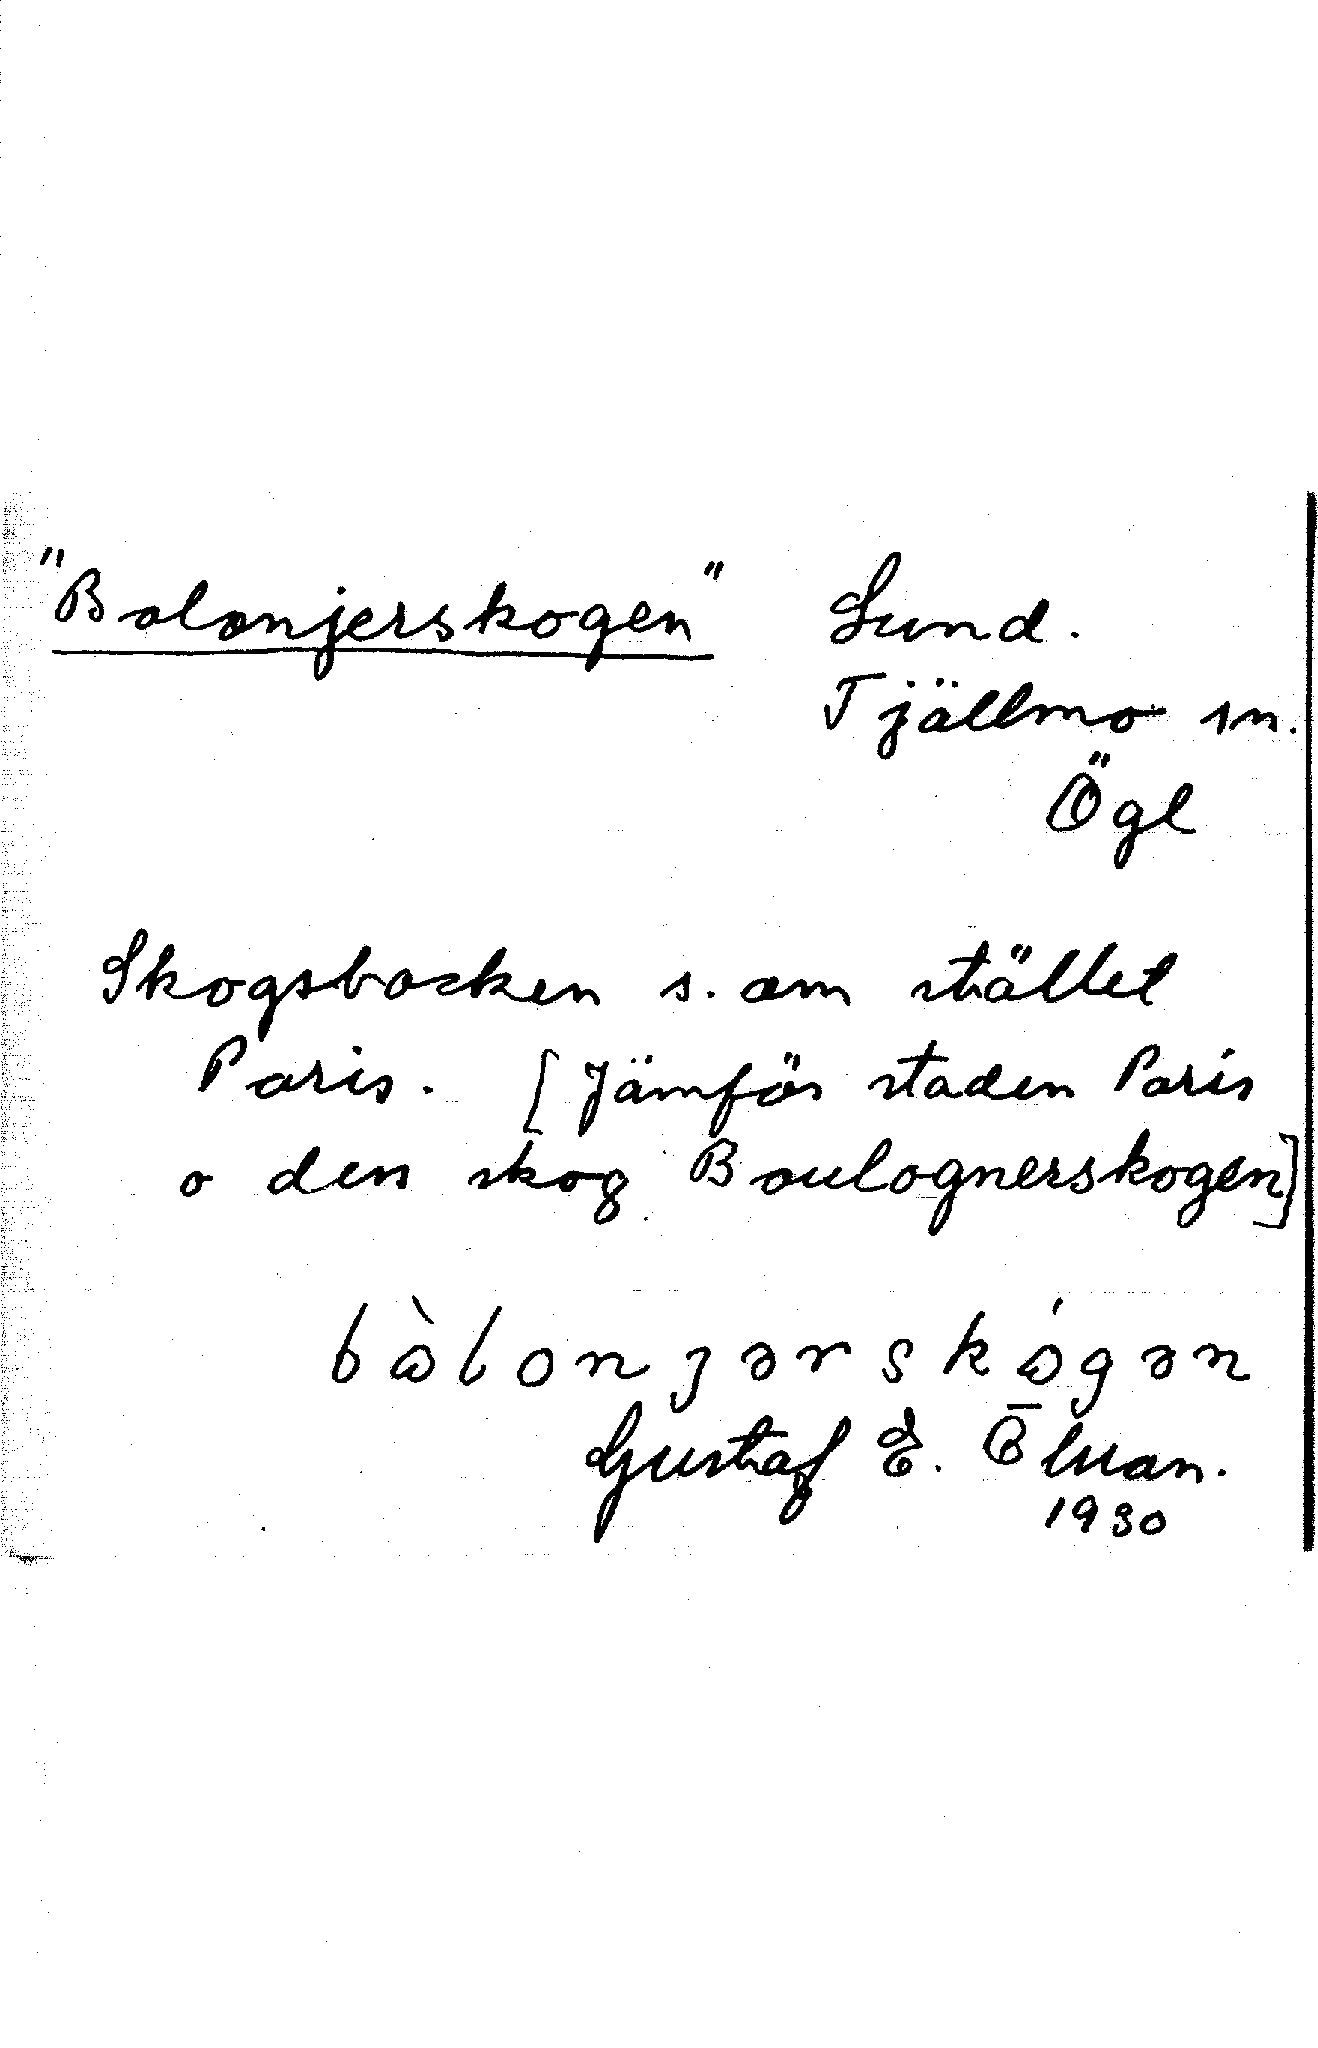 "Bolonjerskogen" Lund.
Tjällmo sn.
Ögl
Skogsbacken s. om stället
Paris. [Jämför staden Paris
o den skog Boulognerskogen]
bòlonjərskógən
Gustaf E.
1930